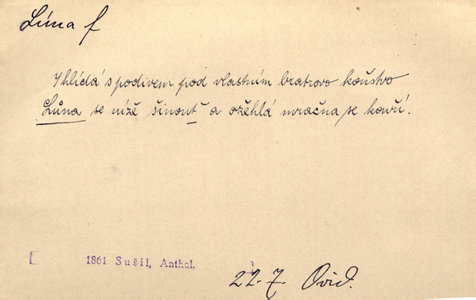 Lůna f
s podivem pod vlastním bratrovo koňstvo
Lůna se níže šinouť a ožěhlá mračna se kouří.
1861 Sušil, Anthol.
22.7. Ovid.